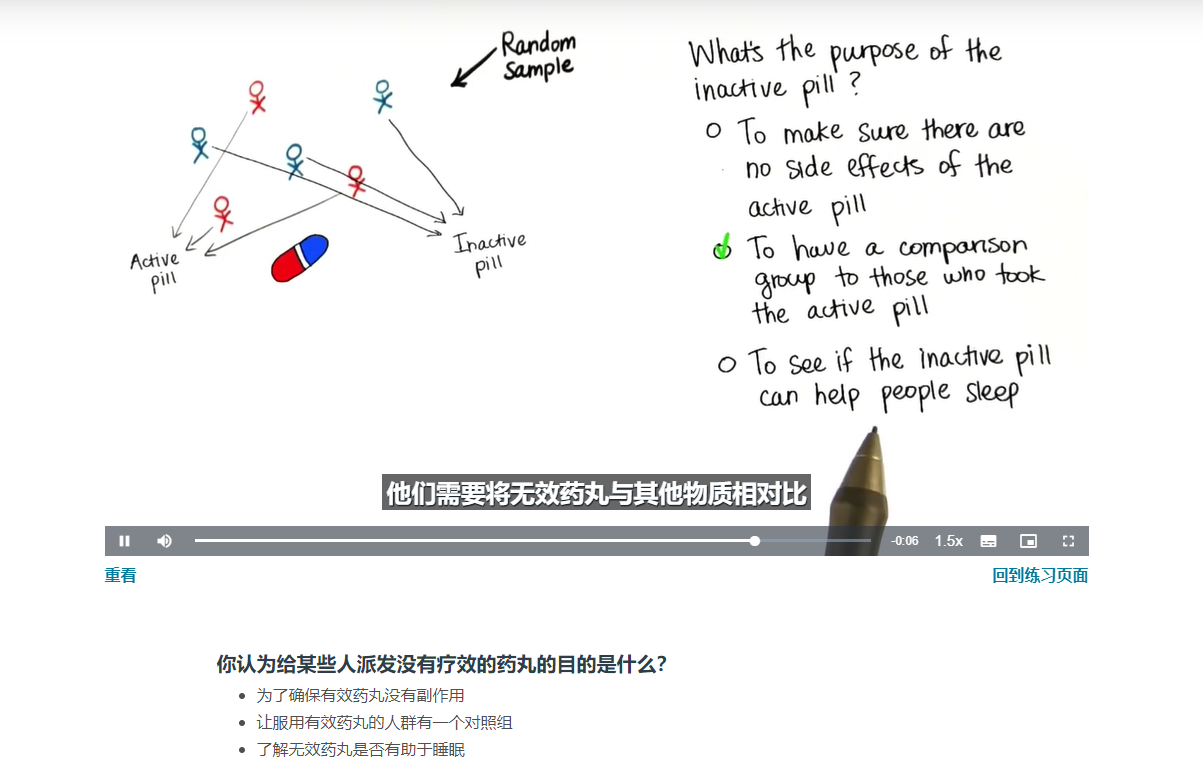 Random
Sample
What's the purpose of the
inactive pill ?
To make sure there are
no side effects of the
active pill
To have a comparison
group to those who took
the active pill
To see if the inactive pill
can help people sleep
Active
pill
Inactive
pill
他们需要将无效药丸与其他物质相对比
-0:06
1.5x
重看
回到练习页面
你认为给某些人派发没有疗效的药丸的目的是什么？
为了确保有效药丸没有副作用
让服用有效药丸的人群有一个对照组
了解无效药丸是否有助于睡眠